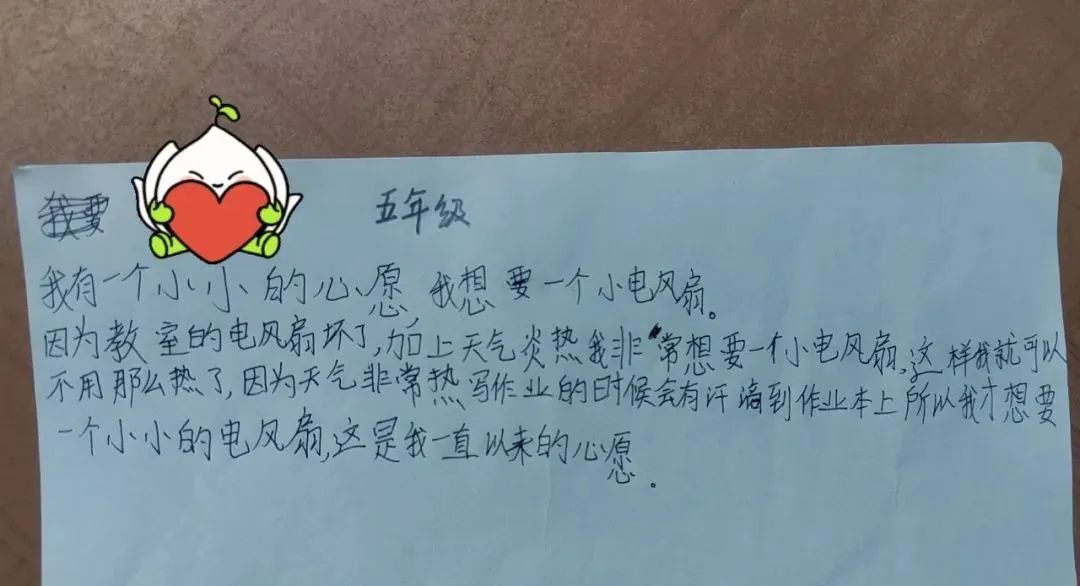 我要
五年级
我有一个小小的心愿,我想要一个小电风扇。
因为教室的电风扇坏了,加上天气炎热我非常想要一个小电风扇,这样我就可以
不用那么热了,因为天气非常热写作业的时候会有汗滴到作业本上所以我才想要
一个小小的电风扇,这是我一直以来的心愿。